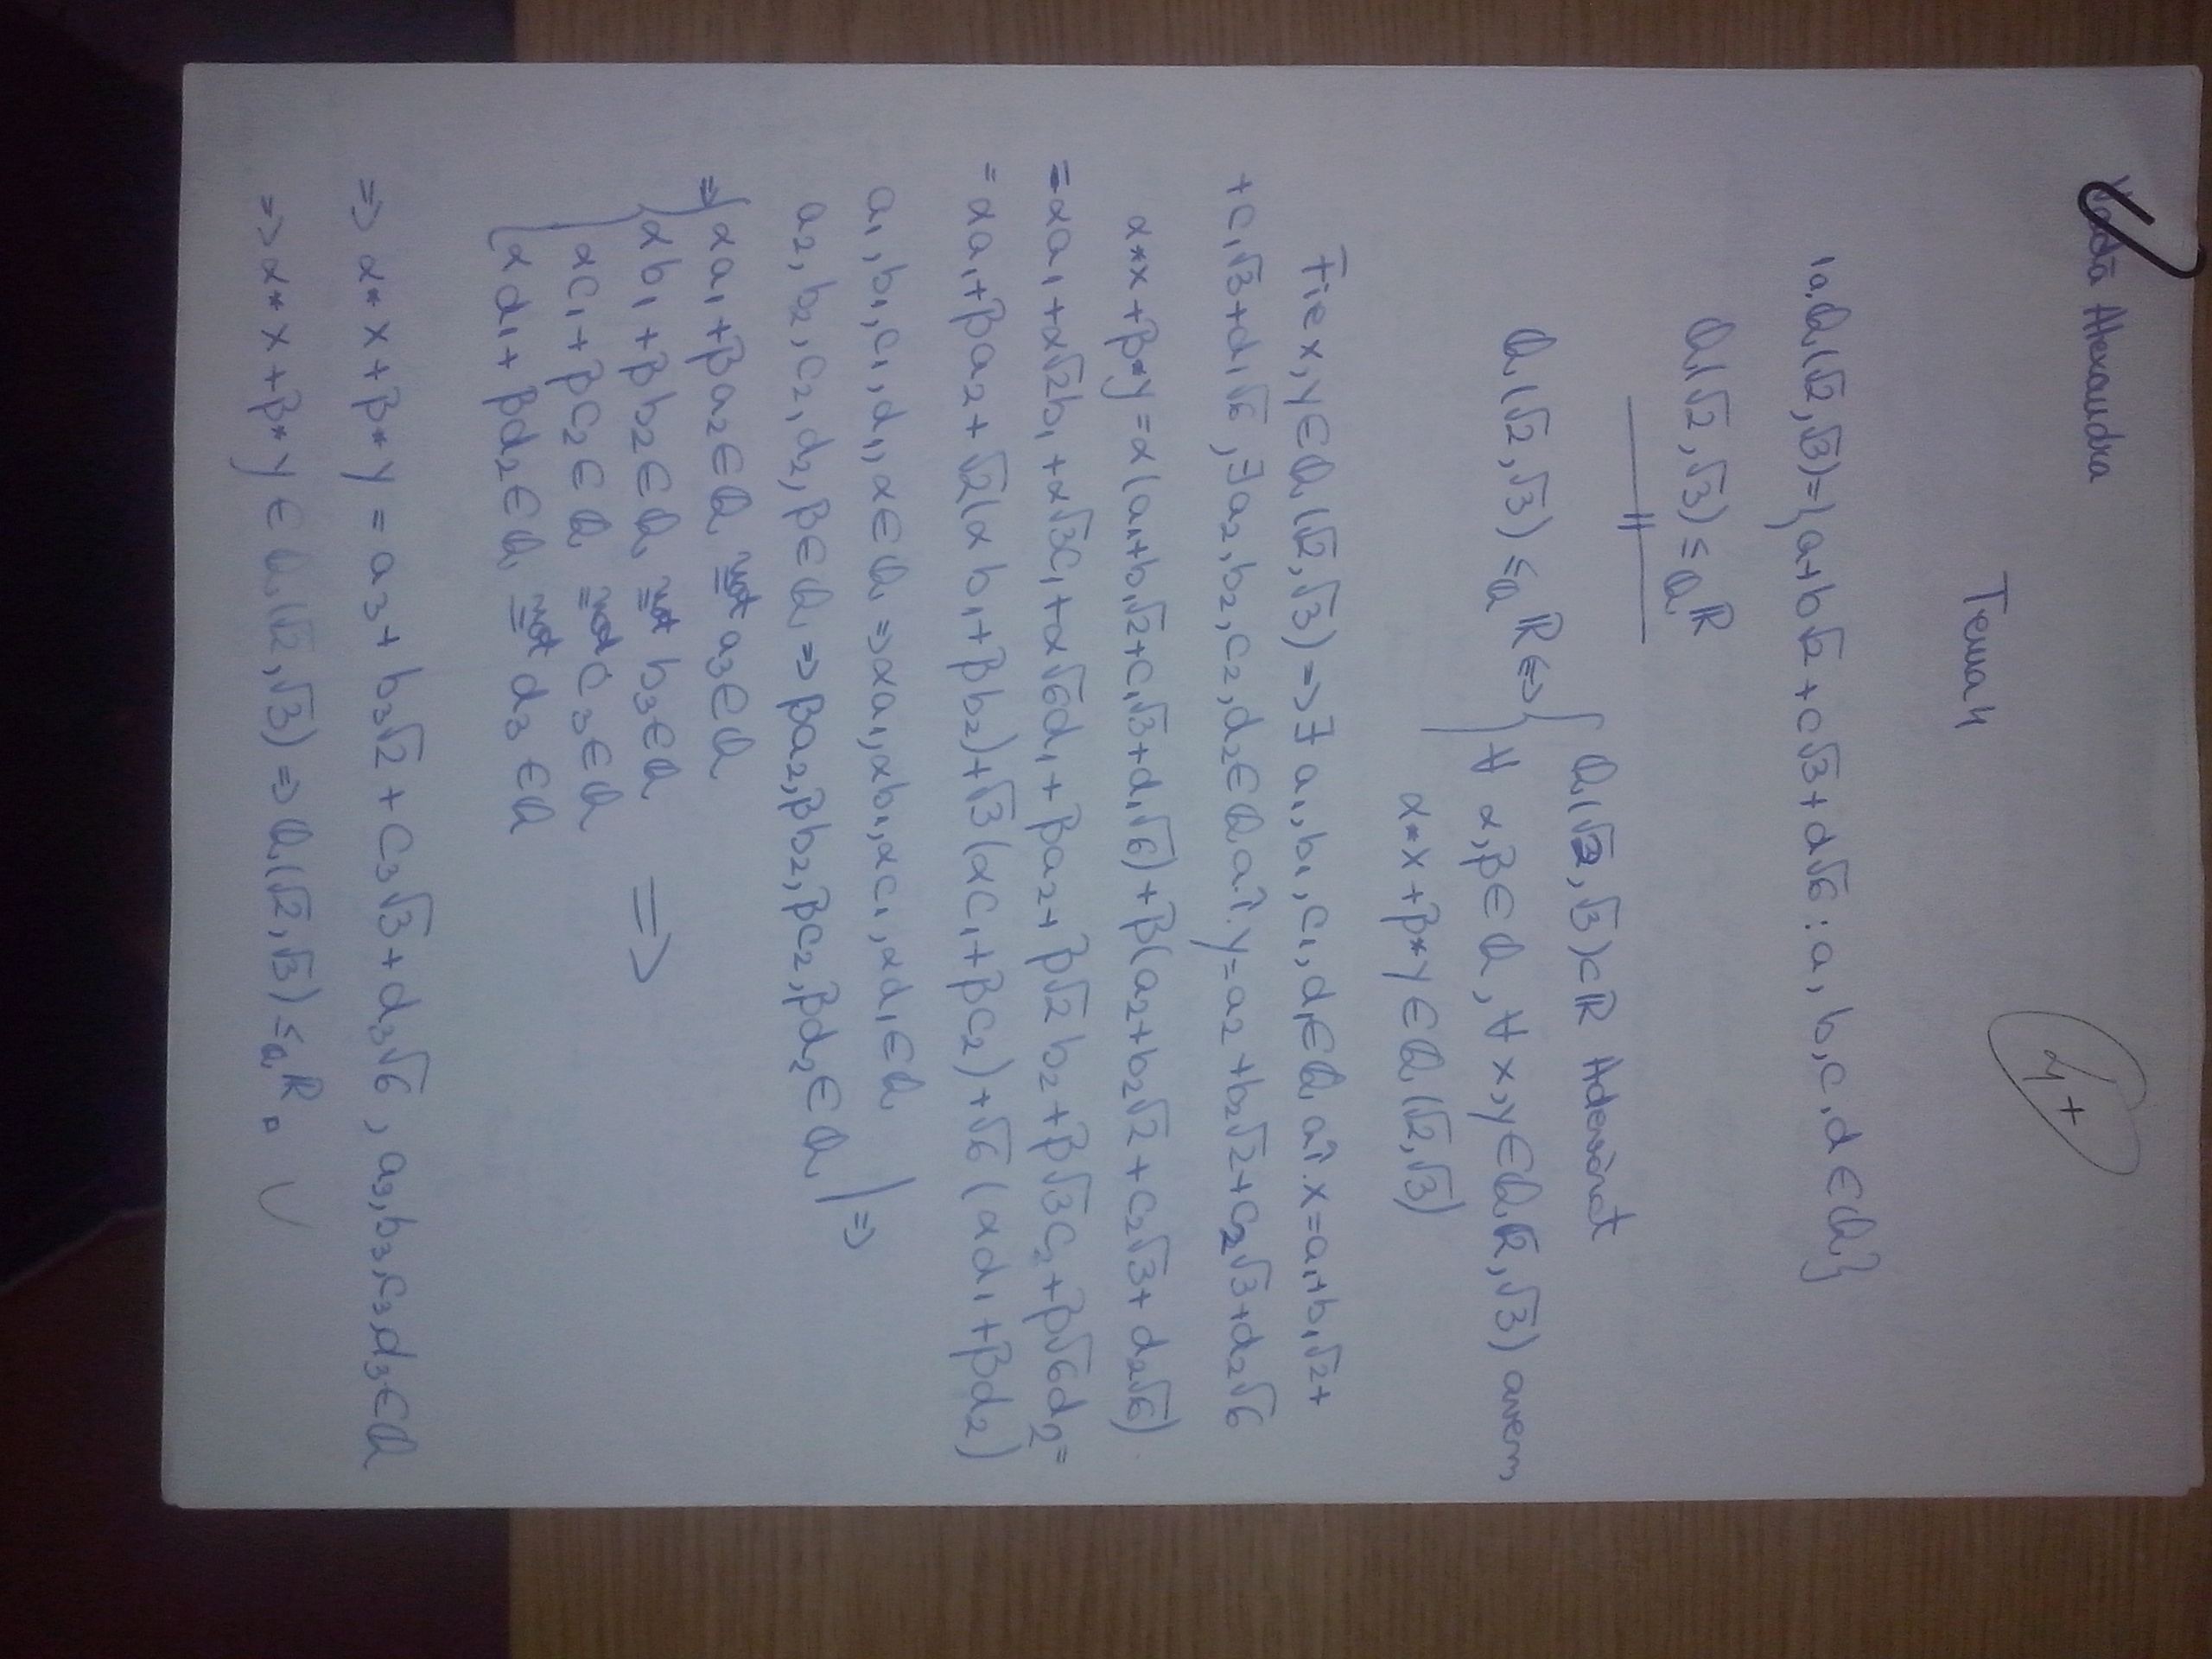 Vadă Alexandra
Tema 4
4+
1a, Q(√2,√3)={a+b√2+c√3+d√6:a,b,c,d∈Q}
Q(√2,√3)≤_Q ℝ
Q(√2,√3)≤_Q ℝ⇔{Q(√2,√3)⊂ℝ Adevărat
∀ α,β∈Q, ∀ x,y∈Q(√2,√3) avem
α*x+β*y∈Q(√2,√3)
Fie x,y∈Q(√2,√3)=>∃ a₁,b₁,c₁,d₁∈Q aî. x=a₁+b₁√2+
+c₁√3+d₁√6,∃a₂,b₂,c₂,d₂∈Q aî.y=a₂+b₂√2+c₂√3+d₂√6
α*x+β*y=α(a₁+b₁√2+c₁√3+d₁√6)+β(a₂+b₂√2+c₂√3+d₂√6)
=αa₁+α√2b₁+α√3c₁+α√6d₁+βa₂+β√2b₂+β√3c₂+β√6d₂=
=αa₁+βa₂+√2(αb₁+βb₂)+√3(αc₁+βc₂)+√6(αd₁+βd₂)
a₁,b₁,c₁,d₁,α∈Q=>αa₁,αb₁,αc₁,αd₁∈Q
a₂,b₂,c₂,d₂,β∈Q=>βa₂,βb₂,βc₂,βd₂∈Q |=>
=>{αa₁+βa₂∈Q not= a₃∈Q
αb₁+βb₂∈Q not= b₃∈Q
αc₁+βc₂∈Q not= c₃∈Q =>
αd₁+βd₂∈Q not= d₃∈Q
=>α*x+β*y=a₃+b₃√2+c₃√3+d₃√6, a₃,b₃,c₃,d₃∈Q
=>α*x+β*y∈Q(√2,√3)=>Q(√2,√3)≤_Q ℝ. ✓